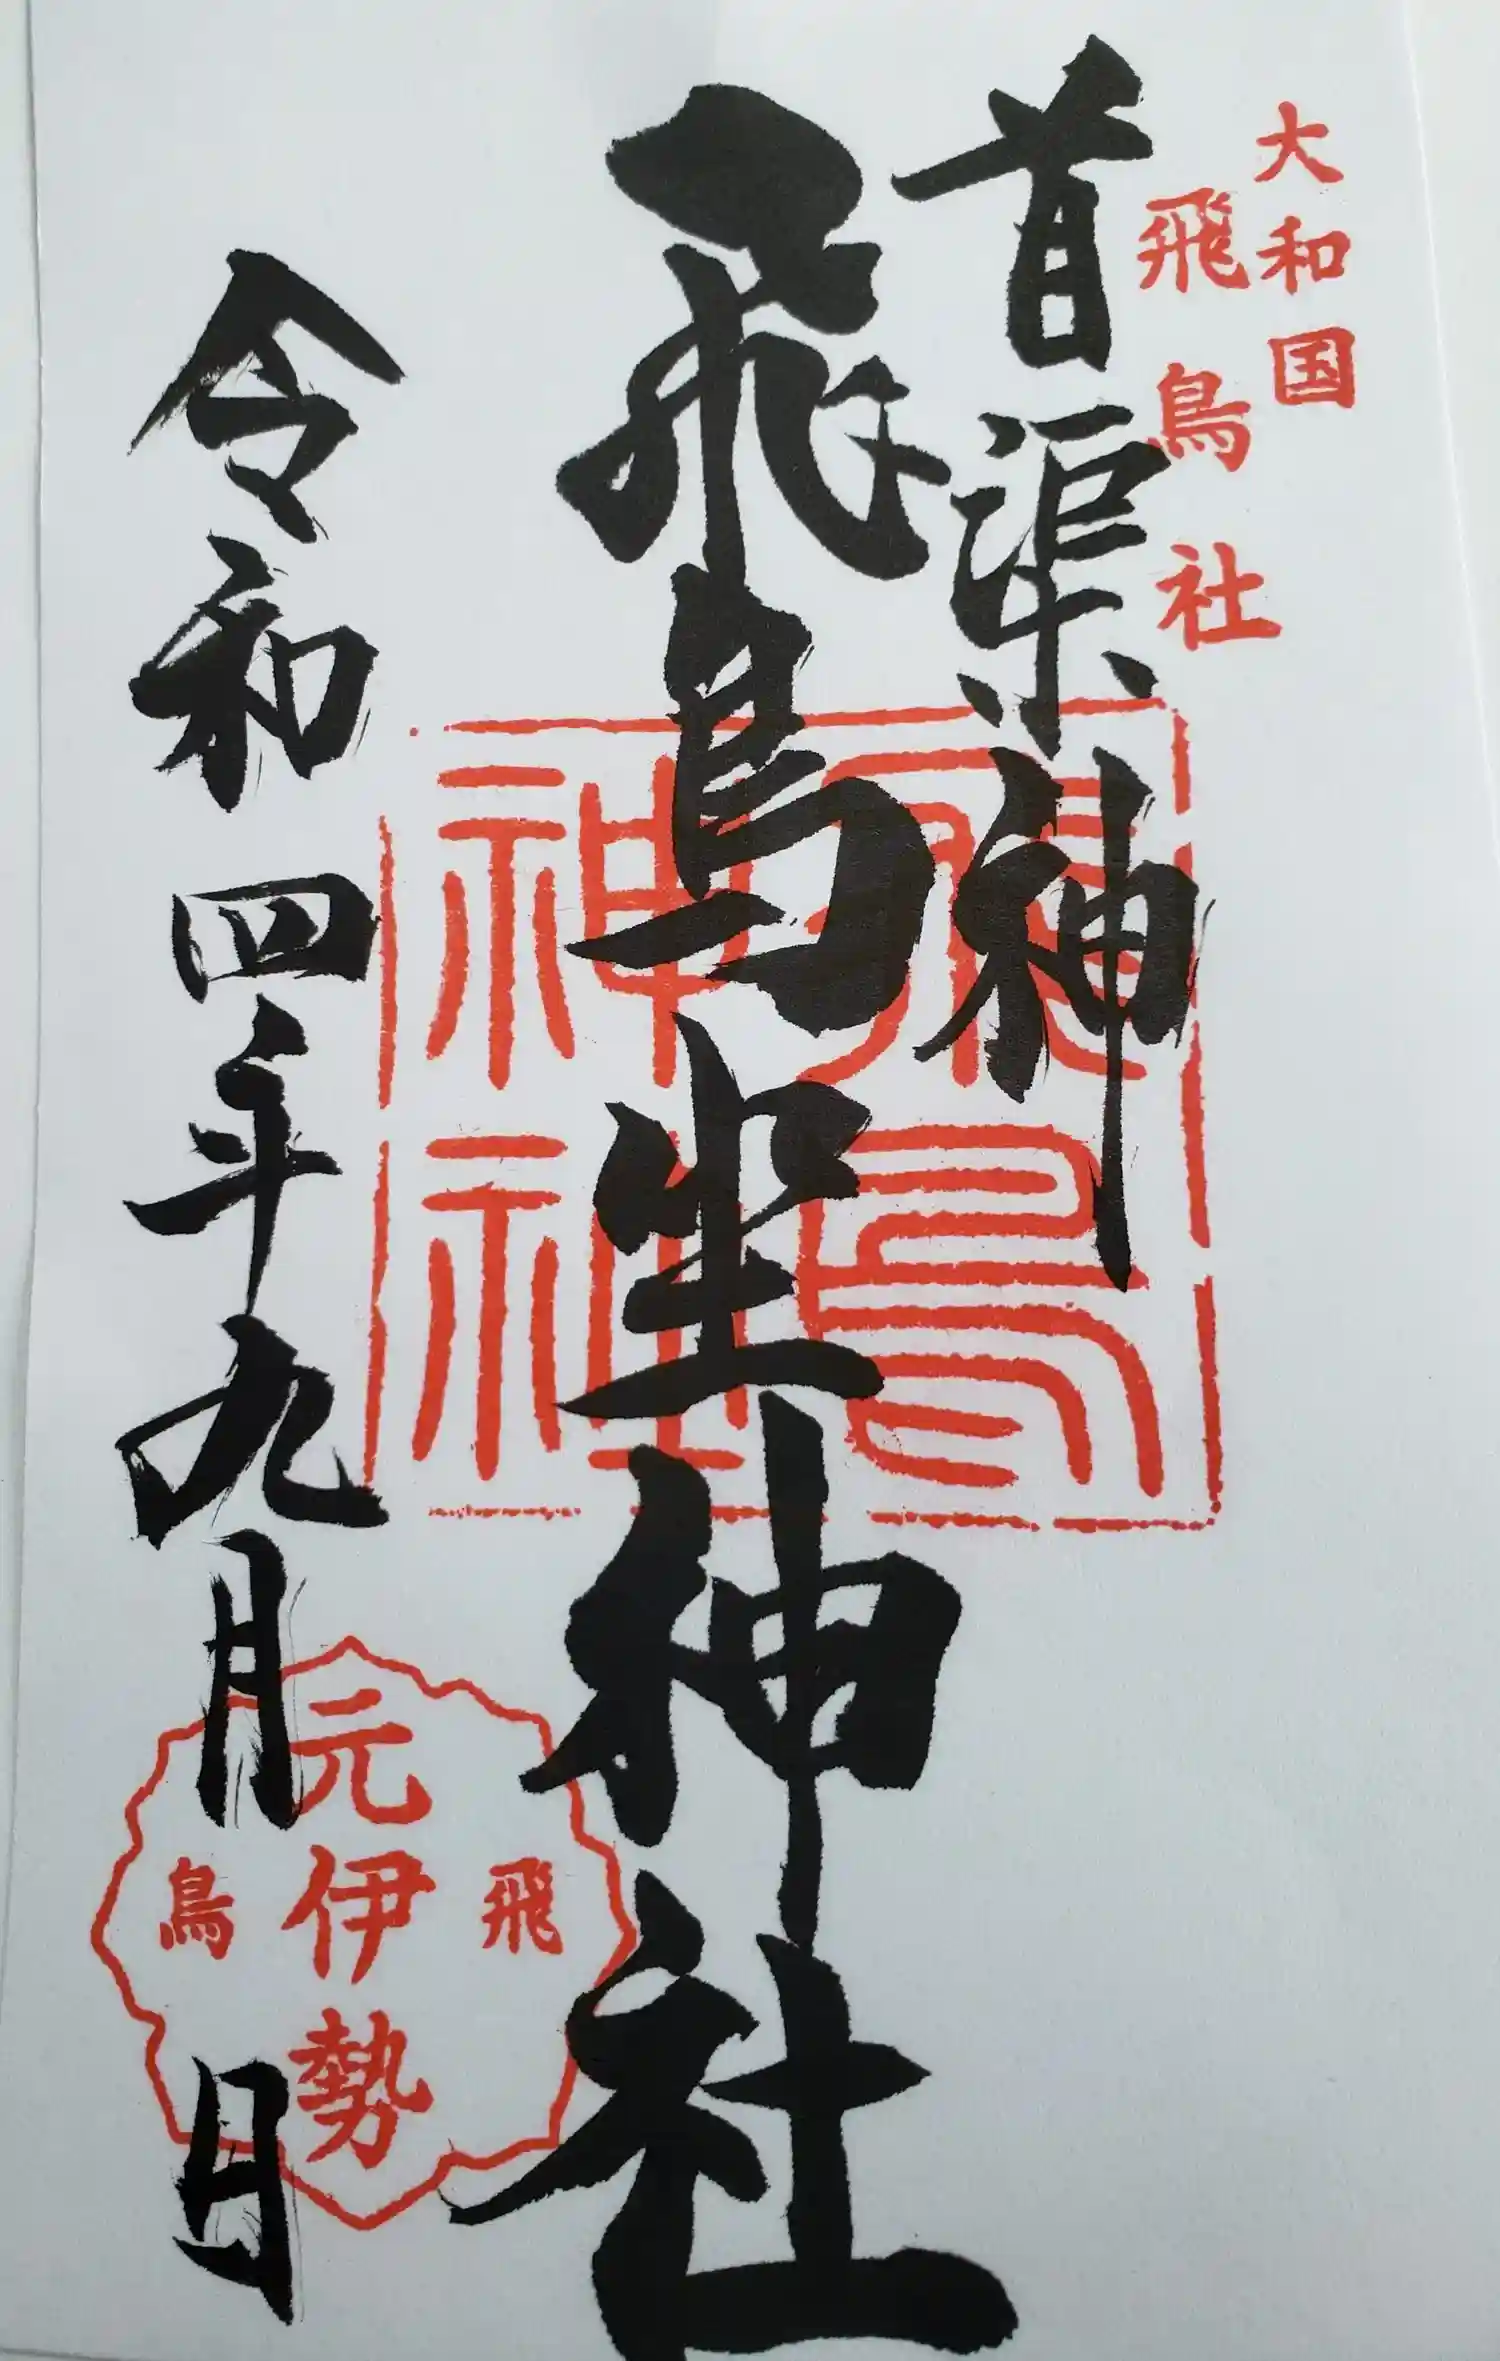 大和国
飛鳥社
首渠神
飛鳥坐神社
飛鳥
神社
令和四年九月 日
飛鳥
元伊勢